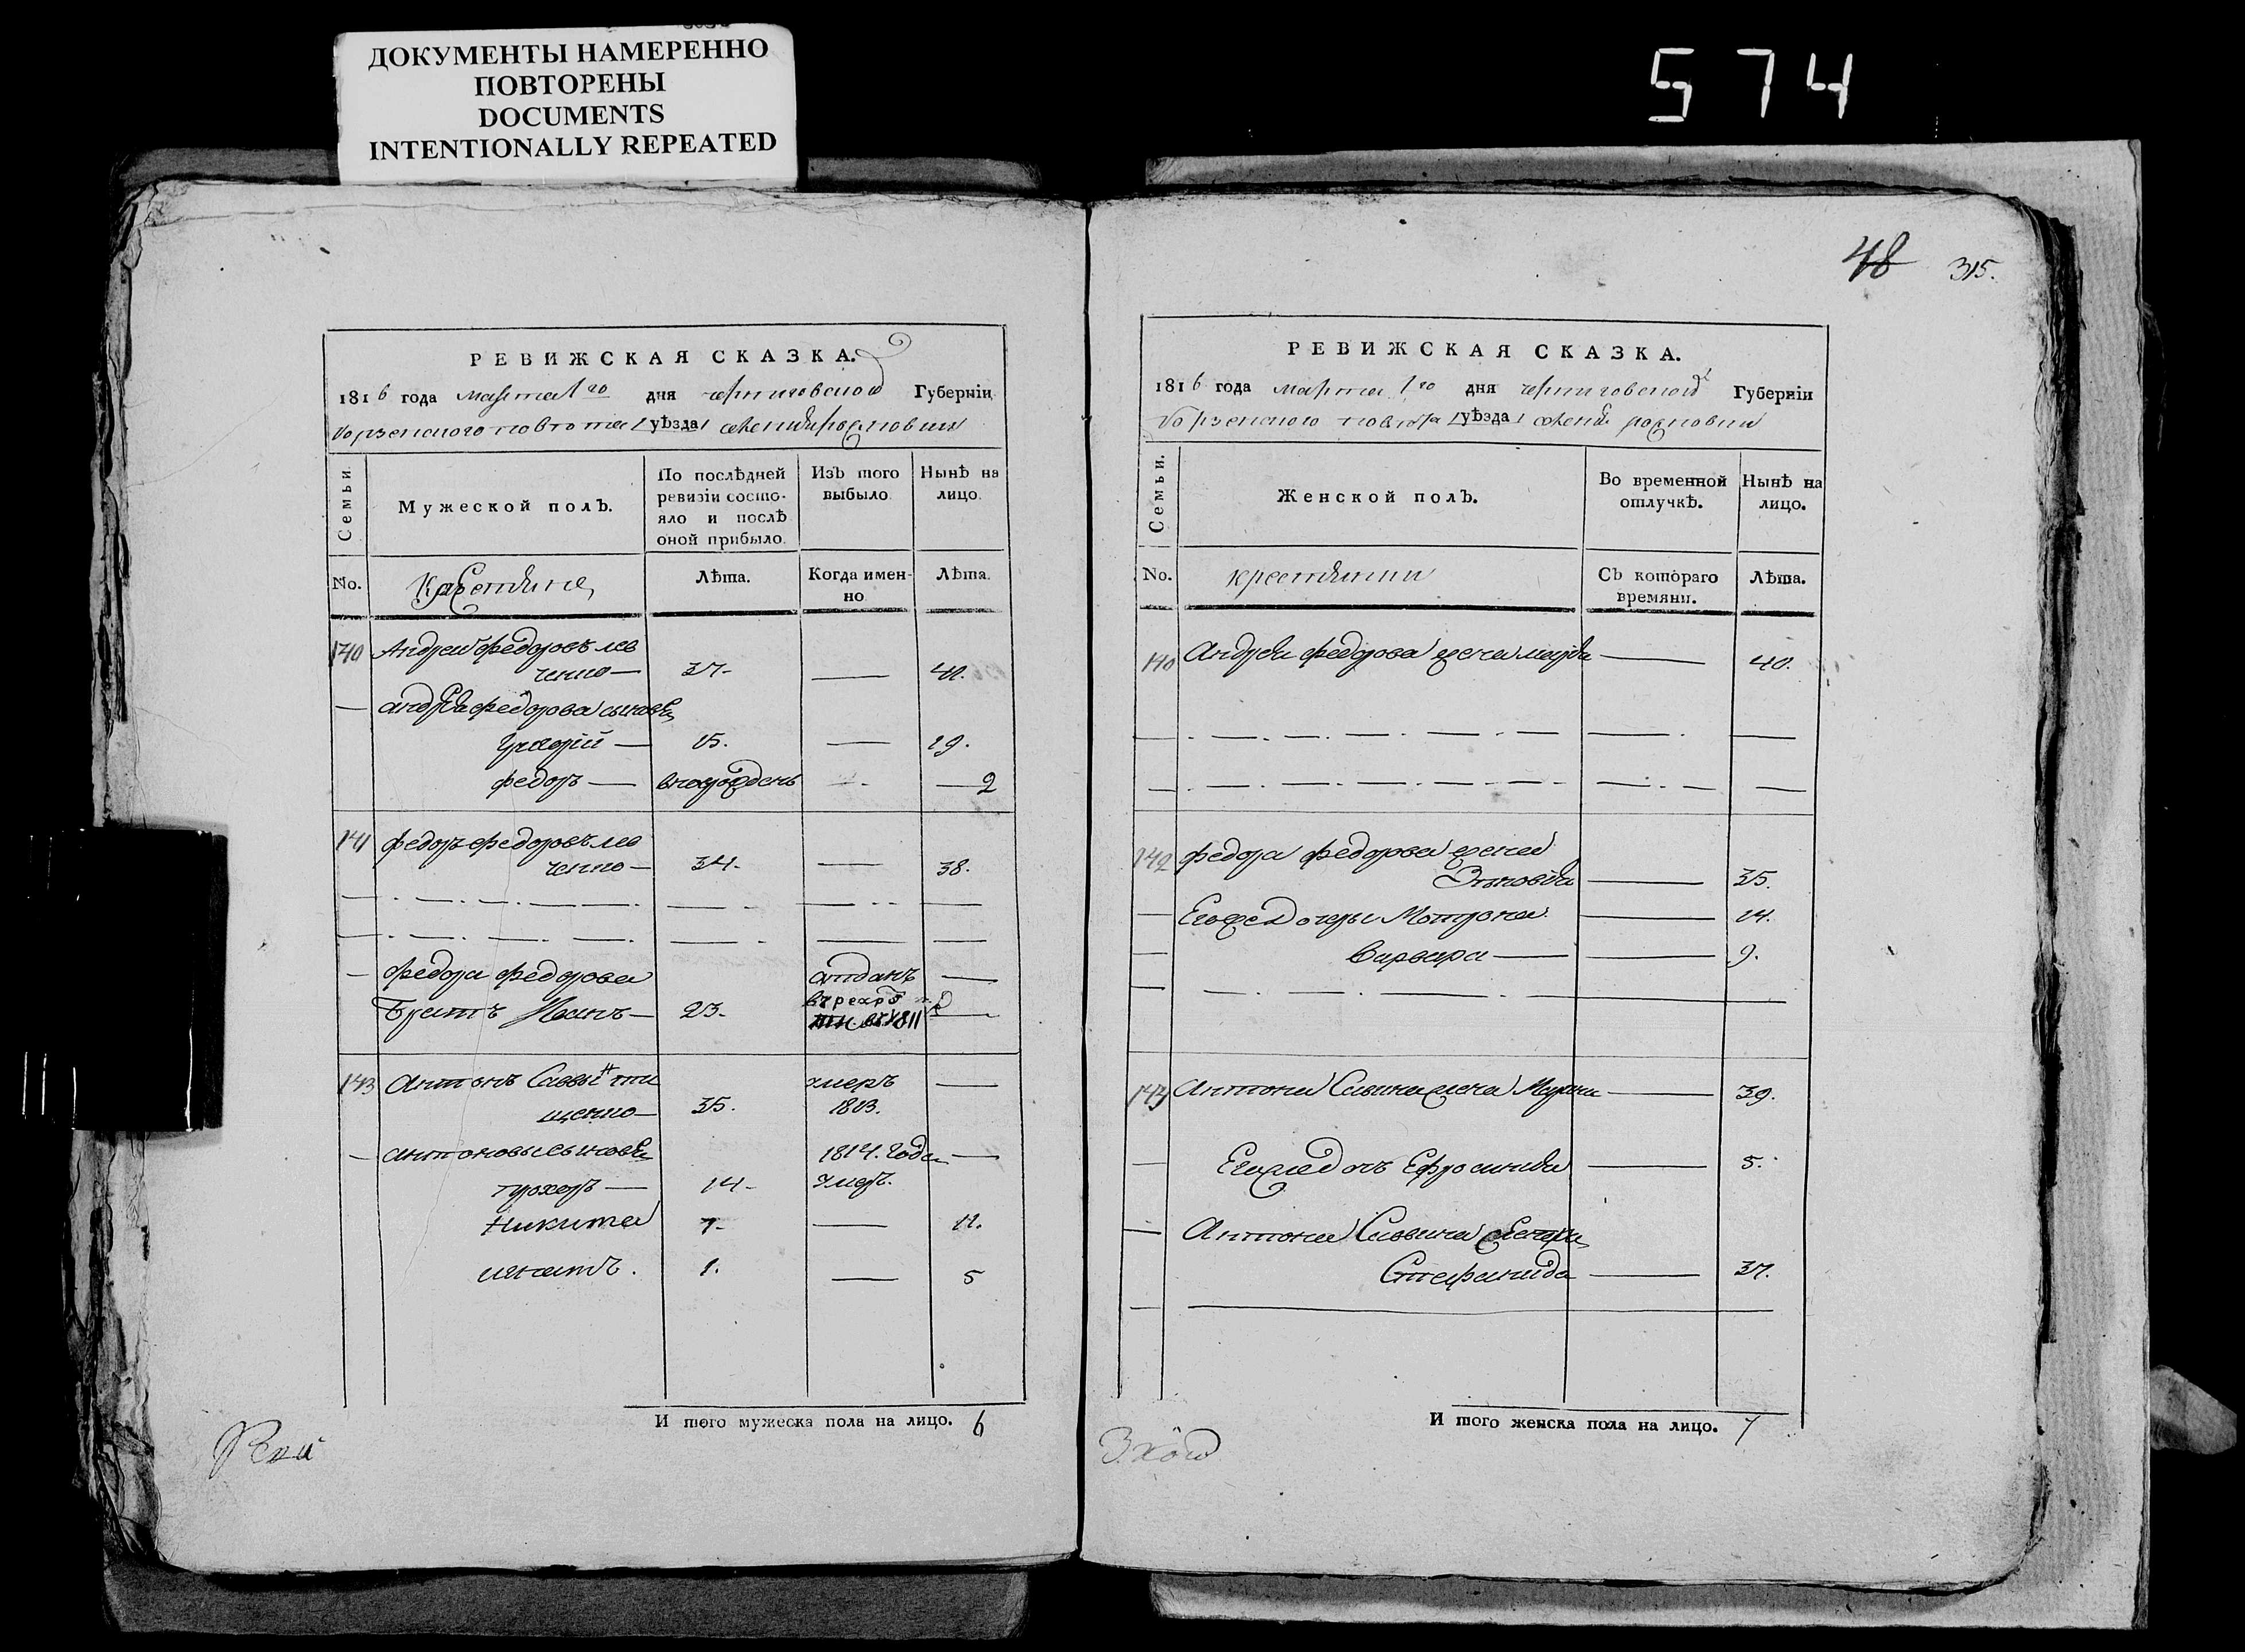 ДОКУМЕНТЫ НАМЕРЕННО
ПОВТОРЕНЫ
DOCUMENTS
INTENTIONALLY REPEATED
574
РЕВИЖСКАЯ СКАЗКА.
1816 года марта 1го дня черниговской Губерніи
борзенского повета /уѣзда/
Семьи.
Мужеской полъ.
По послѣдней ревизіи состояло и послѣ оной прибыло.
Изъ того выбыло.
Нынѣ на лицо.
No.
Лѣта.
Когда именно
Лѣта.
140 Андрей федоровъ лев
ченко — 37 — 41.
— андрея федорова сыновья
григорій — 15. — 19.
федоръ — — 2
141 федоръ федоровъ лев
ченко — 34. — 38.
— федора федорова отданъ —
братъ Иванъ — 23. 1811 —
143 антонъ Саввин ти умеръ —
щенко — 35. 1813.
— антоновы сыновья 1814. года —
прохоръ — 14 — умеръ.
Никита 7 — — 11.
игнатъ. 1. — 5
И того мужеска пола на лицо. 6
48 315.
РЕВИЖСКАЯ СКАЗКА.
1816 года марта 1го дня черниговской Губерніи
борзенского повета /уѣзда/
Семьи.
Женской полъ.
Во временной отлучкѣ.
Нынѣ на лицо.
No.
крестянки
Съ котораго времяни.
Лѣта.
140 андрея федорова жена марья — 40.
142 федора федорова жена
Зѣновія — 35.
— Егоже дочеры Мотрона — 14.
— варвара — — 9.
143 антона Савина жена Марина — 39.
— Егоже дочь Ефросинія — 5.
— Антона Савина
Стефанида — 37.
И того женска пола на лицо. 7